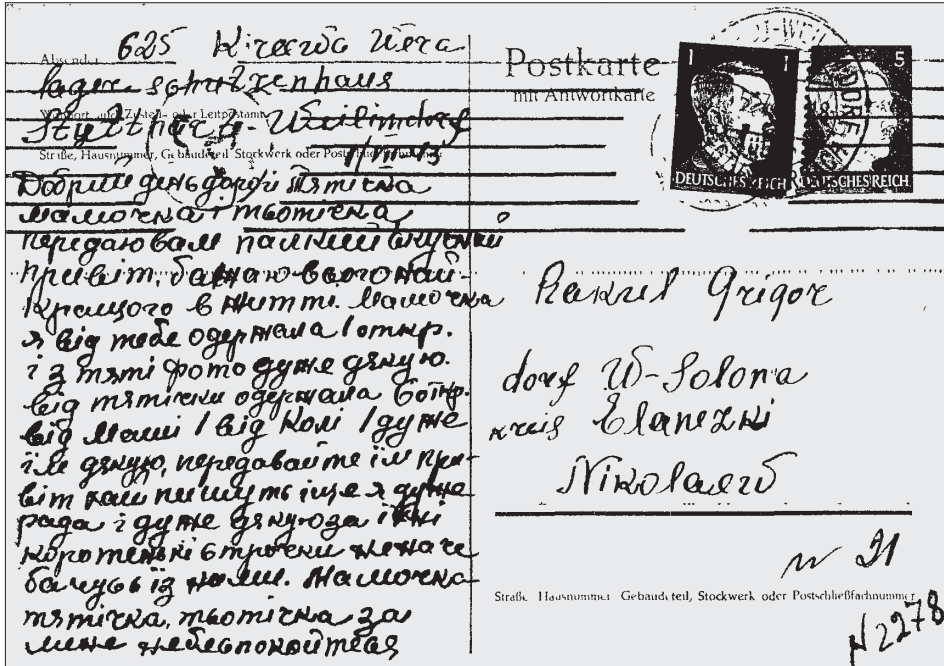 Absender: 625 Wera
Postkarte
mit Antwortkarte
lager schutzenhaus
Wohnort, auch Zustell- oder Leitpostamt
Stuttgart-Weilimdorf
Straße, Hausnummer, Gebäudeteil, Stockwerk oder Postschließfachnummer
1 1
5
DEUTSCHES REICH
DEUTSCHES REICH
Добрий день дорогі тятічка
мамочка і тьотічка
передаю вам палкий вкусний
привіт. бажаю всього най-
кращого в житті. Мамочка
я від тебе одержала 1 откр.
і з тяті фото дуже дякую.
від тятічки одержала 6 откр.
від Маші 1 від Колі 1 дуже
їм дякую, передавайте їм при-
віт хай пишуть іще я дуже
рада і дуже дякую за їхні
коротенькі строчки неначе
бачусь із ними. Мамочка
тятічка, тьотічка за
мене небеспокойтесь
Grigor
dorf W-Solona
kreis Elanezki
Nikolaew
N 21
Straße, Hausnummer, Gebäudeteil, Stockwerk oder Postschließfachnummer
N 2278